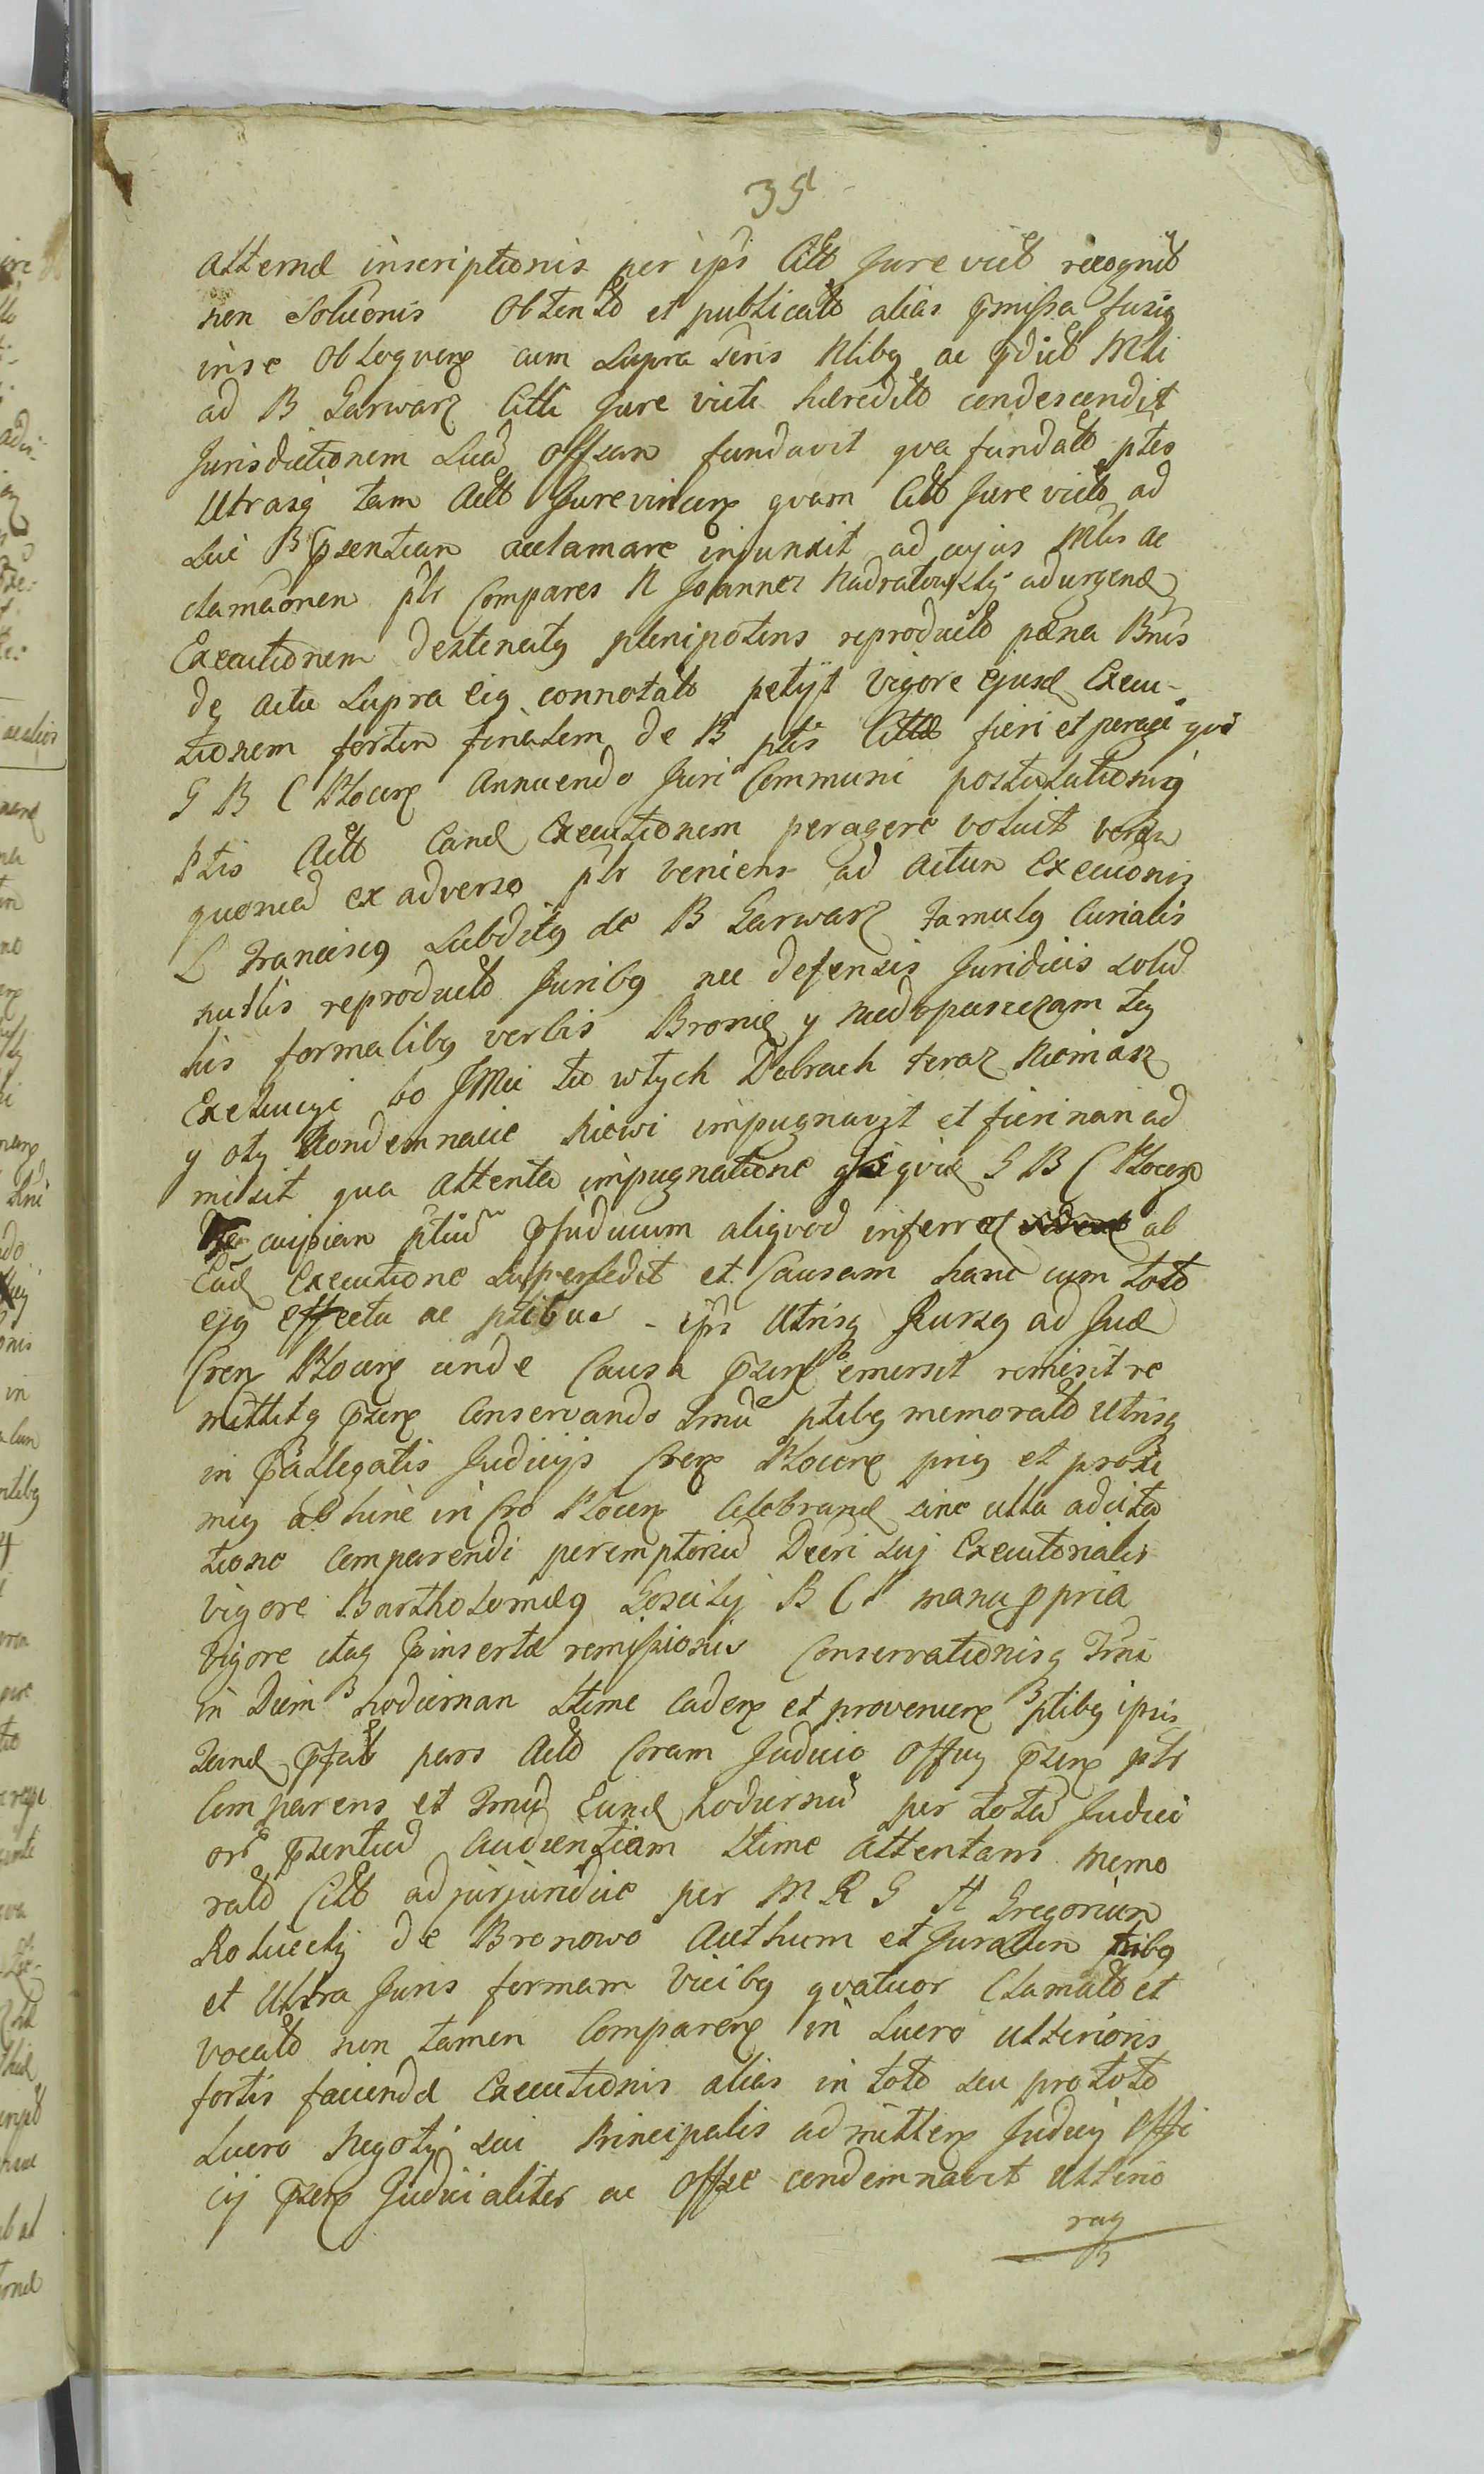 35
atternæ inscriptionis per ipš Citt Jure vict recognit
non Soluonis Obtento et publicato alias pmissa fusiq
in se Obloquenx cum supra Sčris Nlibq ac pdict Mli
ad B Garwarz Citti Jure victi hæredit condescendit
Jurisdictionem Suã Offsan fundavit qva fundato ptes
Utrasq tam Act Jurevincenx qvam Citt Jure victo ad
Sui B psentian acclamare injunxit ad cujus Mlis ac
clamaonen plr Compares N Joannes Nadratowskij adurgend
Executionem destinatq plenipotens reproducto pæna Bnis
de actu Supra Eiq connotato petijt Vigore ejusd Execu-
tionem fortin finalem de B ptis Citto fieri et peragi qvod
G B C Plocenx annuendo Juri Communi postulationiq
Ptis Act Eand Executionem peragere voluit verun
quoniã ex adverso plr veniens ad actun Execuonis
L Franciscq Subditq de B Garwarz Famulq Curialis
nullis reproducto Juribq nec defensis Juridicis solũ
his formalibq verbis Bronię y niedopusczam tey
Exekucyi bo JMci tu wtych Dobrach teraz Niemasz
y oty Kondemnacie niewi impugnavit et fieri nan ad
misit qua attenta impugnatione G B C Plocenx
Ne cuipian ptiũ pjudicium aliqvod inferret ab
Ead Executione Supersedit et Causam hanc cum toto
ejq effectu ac ptibus ipš Utrisq Rursq ad Jud
Cren Plocenx unde Causa pzenx emersit remisit re
mittitq pzenx Conservando Tmũ ptibq memorato Utrisq
in pallegatis Judicijs Crenx Plocenx priq et proxi
miq abhinc in Cro Plocenx Celebrand sine ulla adcita
tione Comparendi peremptoriũ Decri Suj Executorialis
vigore Bartholomæq Goscikij B C P manu ppria
Vigore itaq pinsertæ remissionis Conservationisq Tmi
in Diem hodiernan Ltime Cadenx et provenienx ptibq ipsis
Tand pfato pars Act Coram Judicio Offuq pzenx plr
Comparens et Tmũ Eund hodiernũ per totã Judici
orũ pzentiũ Audientiam Ltime attentans memo
rato Citt adjurjuridice per M R G H Gregoriun
Rokicckij de Bronowo Acthum et Juratun tribq
et Ultra Juris formam Vicibq qvatuor Clamato et
vocato non tamen Comparenx in Lucro ulterioris
fortis faciendæ Executionis alias in toto seu pro toto
Lucro Negotij sui Principalis admittenx Judicij Offi
cij pzenx Judicialiter ac Offse condemnavit Ulterio
raq